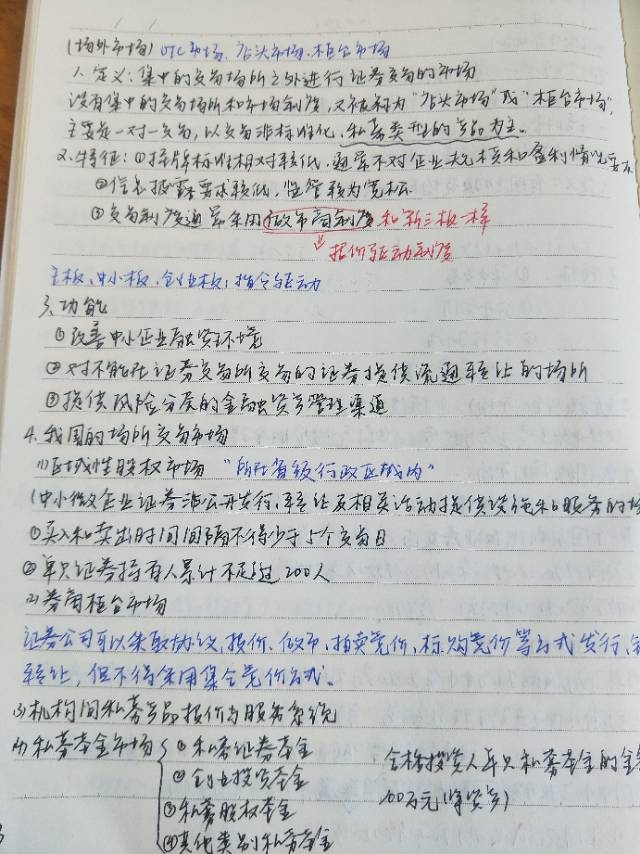 (场外市场) OTC市场、店头市场、柜台市场
1. 定义：集中的交易场所之外进行证券交易的市场
没有集中的交易场所和市场制度，又被称为“店头市场”或“柜台市场”，
主要是一对一交易，以交易非标准化、私募类型的产品为主。
2. 特征：①挂牌标准相对较低，通常不对企业规模和盈利情况要求
②信息披露要求较低，监管较为宽松
③交易制度通常采用做市商制度 和新三板一样
报价驱动制度
主板、中小板、创业板：指令驱动
3. 功能
①改善中小企业融资环境
②对不能在证券交易所交易的证券提供流通转让的场所
③提供风险分层的金融资产管理渠道
4. 我国的场所交易市场
(1)区域性股权市场 “所在省级行政区域内”
(中小微企业证券非公开发行、转让及相关活动提供设施和服务的
①买入和卖出时间间隔不得少于5个交易日
②单只证券持有人累计不超过200人
(2)券商柜台市场
证券公司可以采取协议、报价、做市、拍卖竞价、标购竞价等方式发行、
转让，但不得采用集合竞价方式。
(3)机构间私募产品报价与服务系统
(4)私募基金市场 ①私募证券基金
②创业投资基金
③私募股权基金
④其他类别私募基金
合格投资人单只私募基金的金
100万元